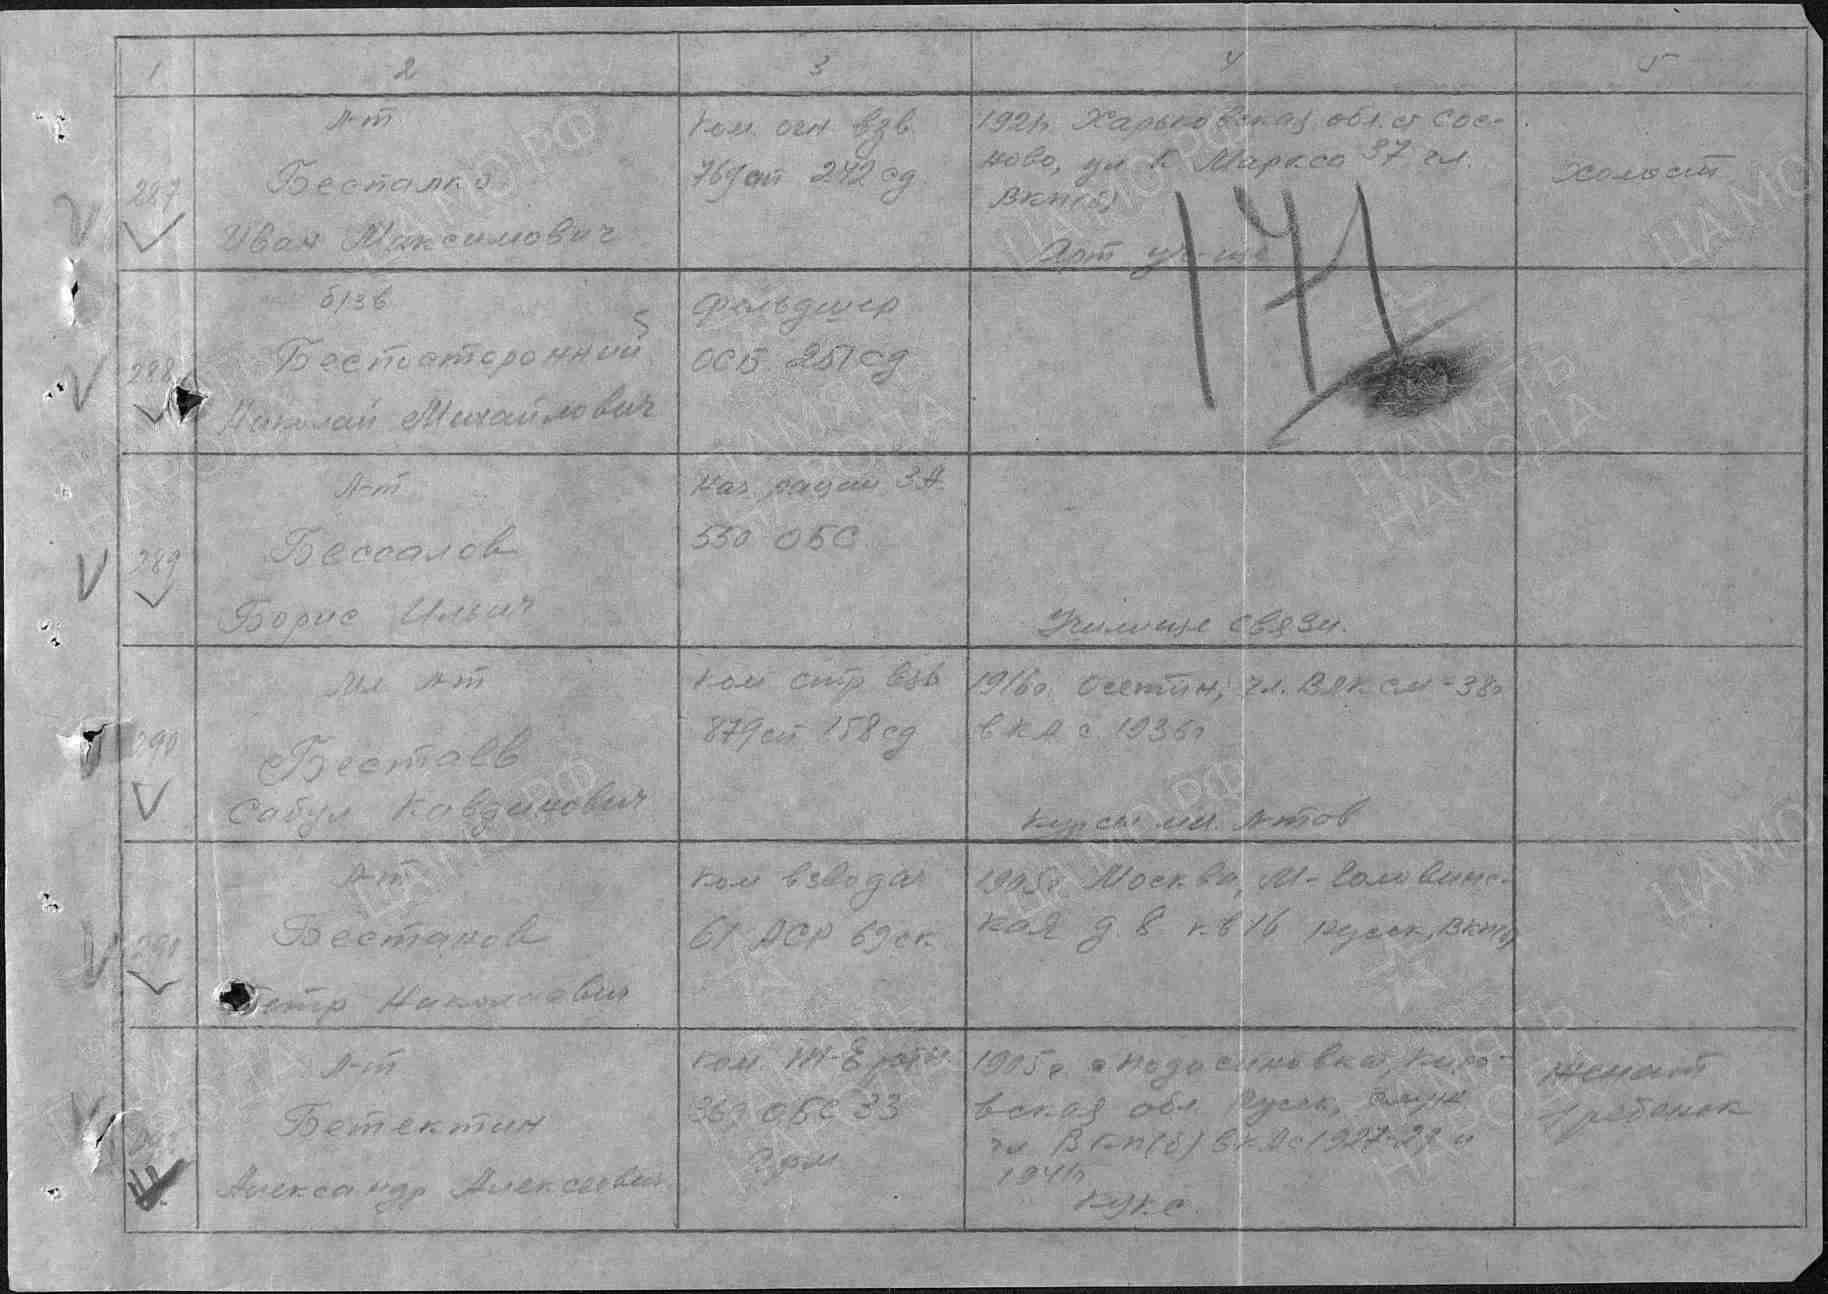 1 2 3 4 5
287
Л-т
Беспалко
Иван Максимович
Ком. огн взв.
769 ап 242 сд
1921г. Харьковская обл. ст Сос-
ново, ул К Маркса 37 чл.
ВКП(б)
Арт уч-ще
Холост
141
288
Беспосторонний
Николай Михайлович
фельдшер
ОСБ 251 сд
289
Л-т
Бессалов
Борис Ильич
Нач. рации 3А
550 ОБС
Училище связи.
290
Мл л-т
Бестаев
Сабул
Ком стр взв
879 сп 158 сд
1916г. Осетин, чл. ВЛКСМ-38г
в КА с 1936г
Курсы мл. л-тов
291
Л-т
Бестанов
Петр Николаевич
Ком взвода
61 69 ск
1905г. Москва, М-Головинс-
кая д. 8 кв 16 русск, ВКП(б)
Л-т
Бетектин
Александр Алексеевич
Ком.
ОБС 33
1905г. с Подосиновка, Киро-
вская обл. Русск, служ
чл ВКП(б) в КА с 1927-29 и
1941г
КУКС
Женат
1 ребенок
ЦАМО РФ
ПАМЯТЬ
НАРОДА